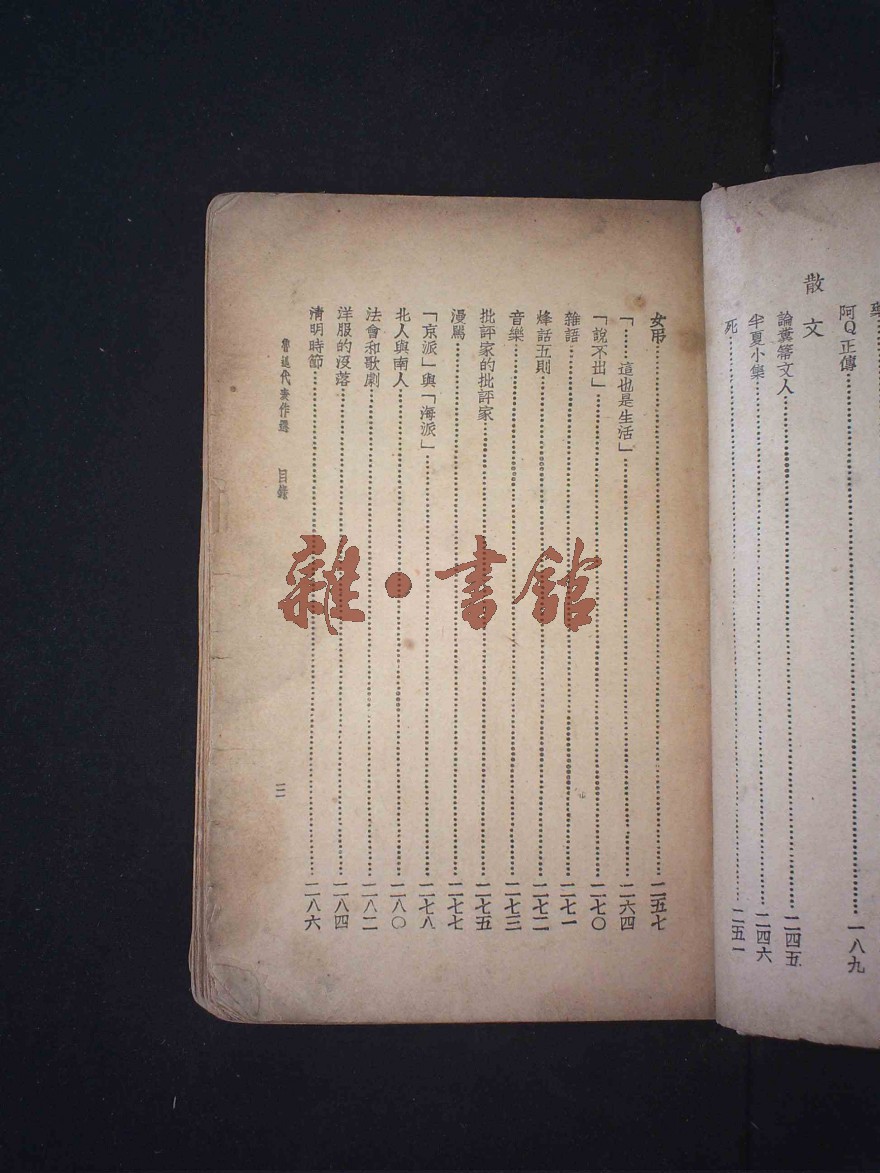 阿Q正傳 一八九
散文
論糞帚文人 二四五
半夏小集 二四六
死 二五一
女吊 二五七
「……這也是生活」 二六四
「說不出」 二七〇
雜語 二七一
烽話五則 二七二
音樂 二七三
批評家的批評家 二七五
漫駡 二七七
「京派」與「海派」 二七八
北人與南人 二八〇
法會和歌劇 二八二
洋服的沒落 二八四
清明時節 二八六
魯迅代表作選 目錄 二
雜·書館